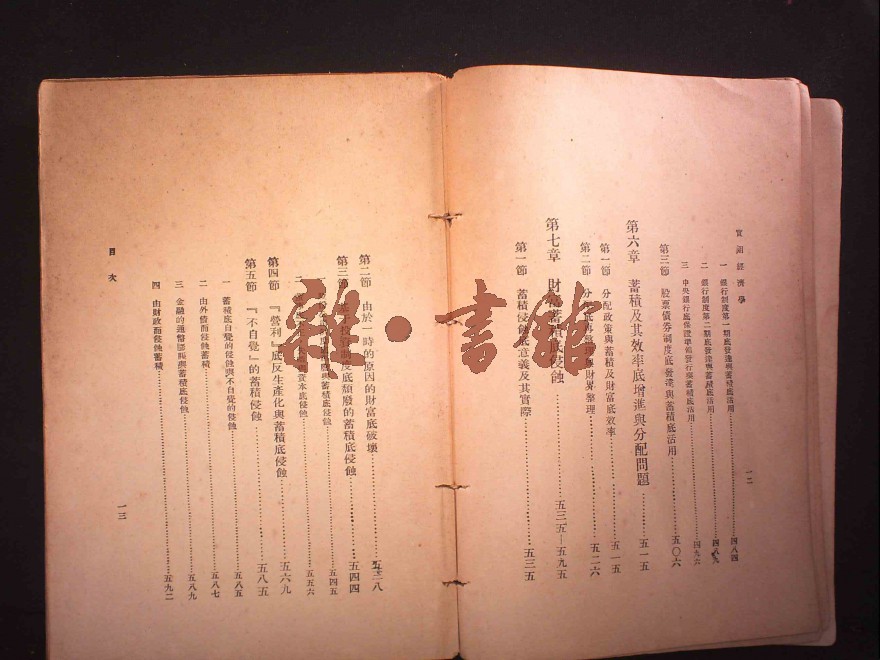 實證經濟學
一 銀行制度第一期底發達與蓄積底活用 四八四
二 銀行制度第二期底發達與蓄積底活用 四八九
三 中央銀行底保證準備發行與蓄積底活用 四九六
第三節 股票債券制度底發達與蓄積底活用 五〇六
第六章 蓄積及其效率底增進與分配問題 五一五
第一節 分配政策與蓄積及財富底效率 五一五
第二節 分 底再 理與財界整理 五二六
第七章 財 蓄積底侵蝕 五三五—五九五
第一節 蓄積侵蝕底意義及其實際 五三五
一二
第二節 由於一時的原因的財富底破壞 五三八
第三節 投資制度底頹廢的蓄積底侵蝕 五四四
一 與蓄積底侵蝕 五四五
二 資本底侵蝕 五五六
第四節 『營利』底反生產化與蓄積底侵蝕 五六九
第五節 『不自覺』的蓄積侵蝕 五八五
一 蓄積底自覺的侵蝕與不自覺的侵蝕 五八五
二 由外債而侵蝕蓄積 五八七
三 金融的通貨膨脹與蓄積底侵蝕 五八九
四 由財政而侵蝕蓄積 五九二
目次
一三
雜·書館